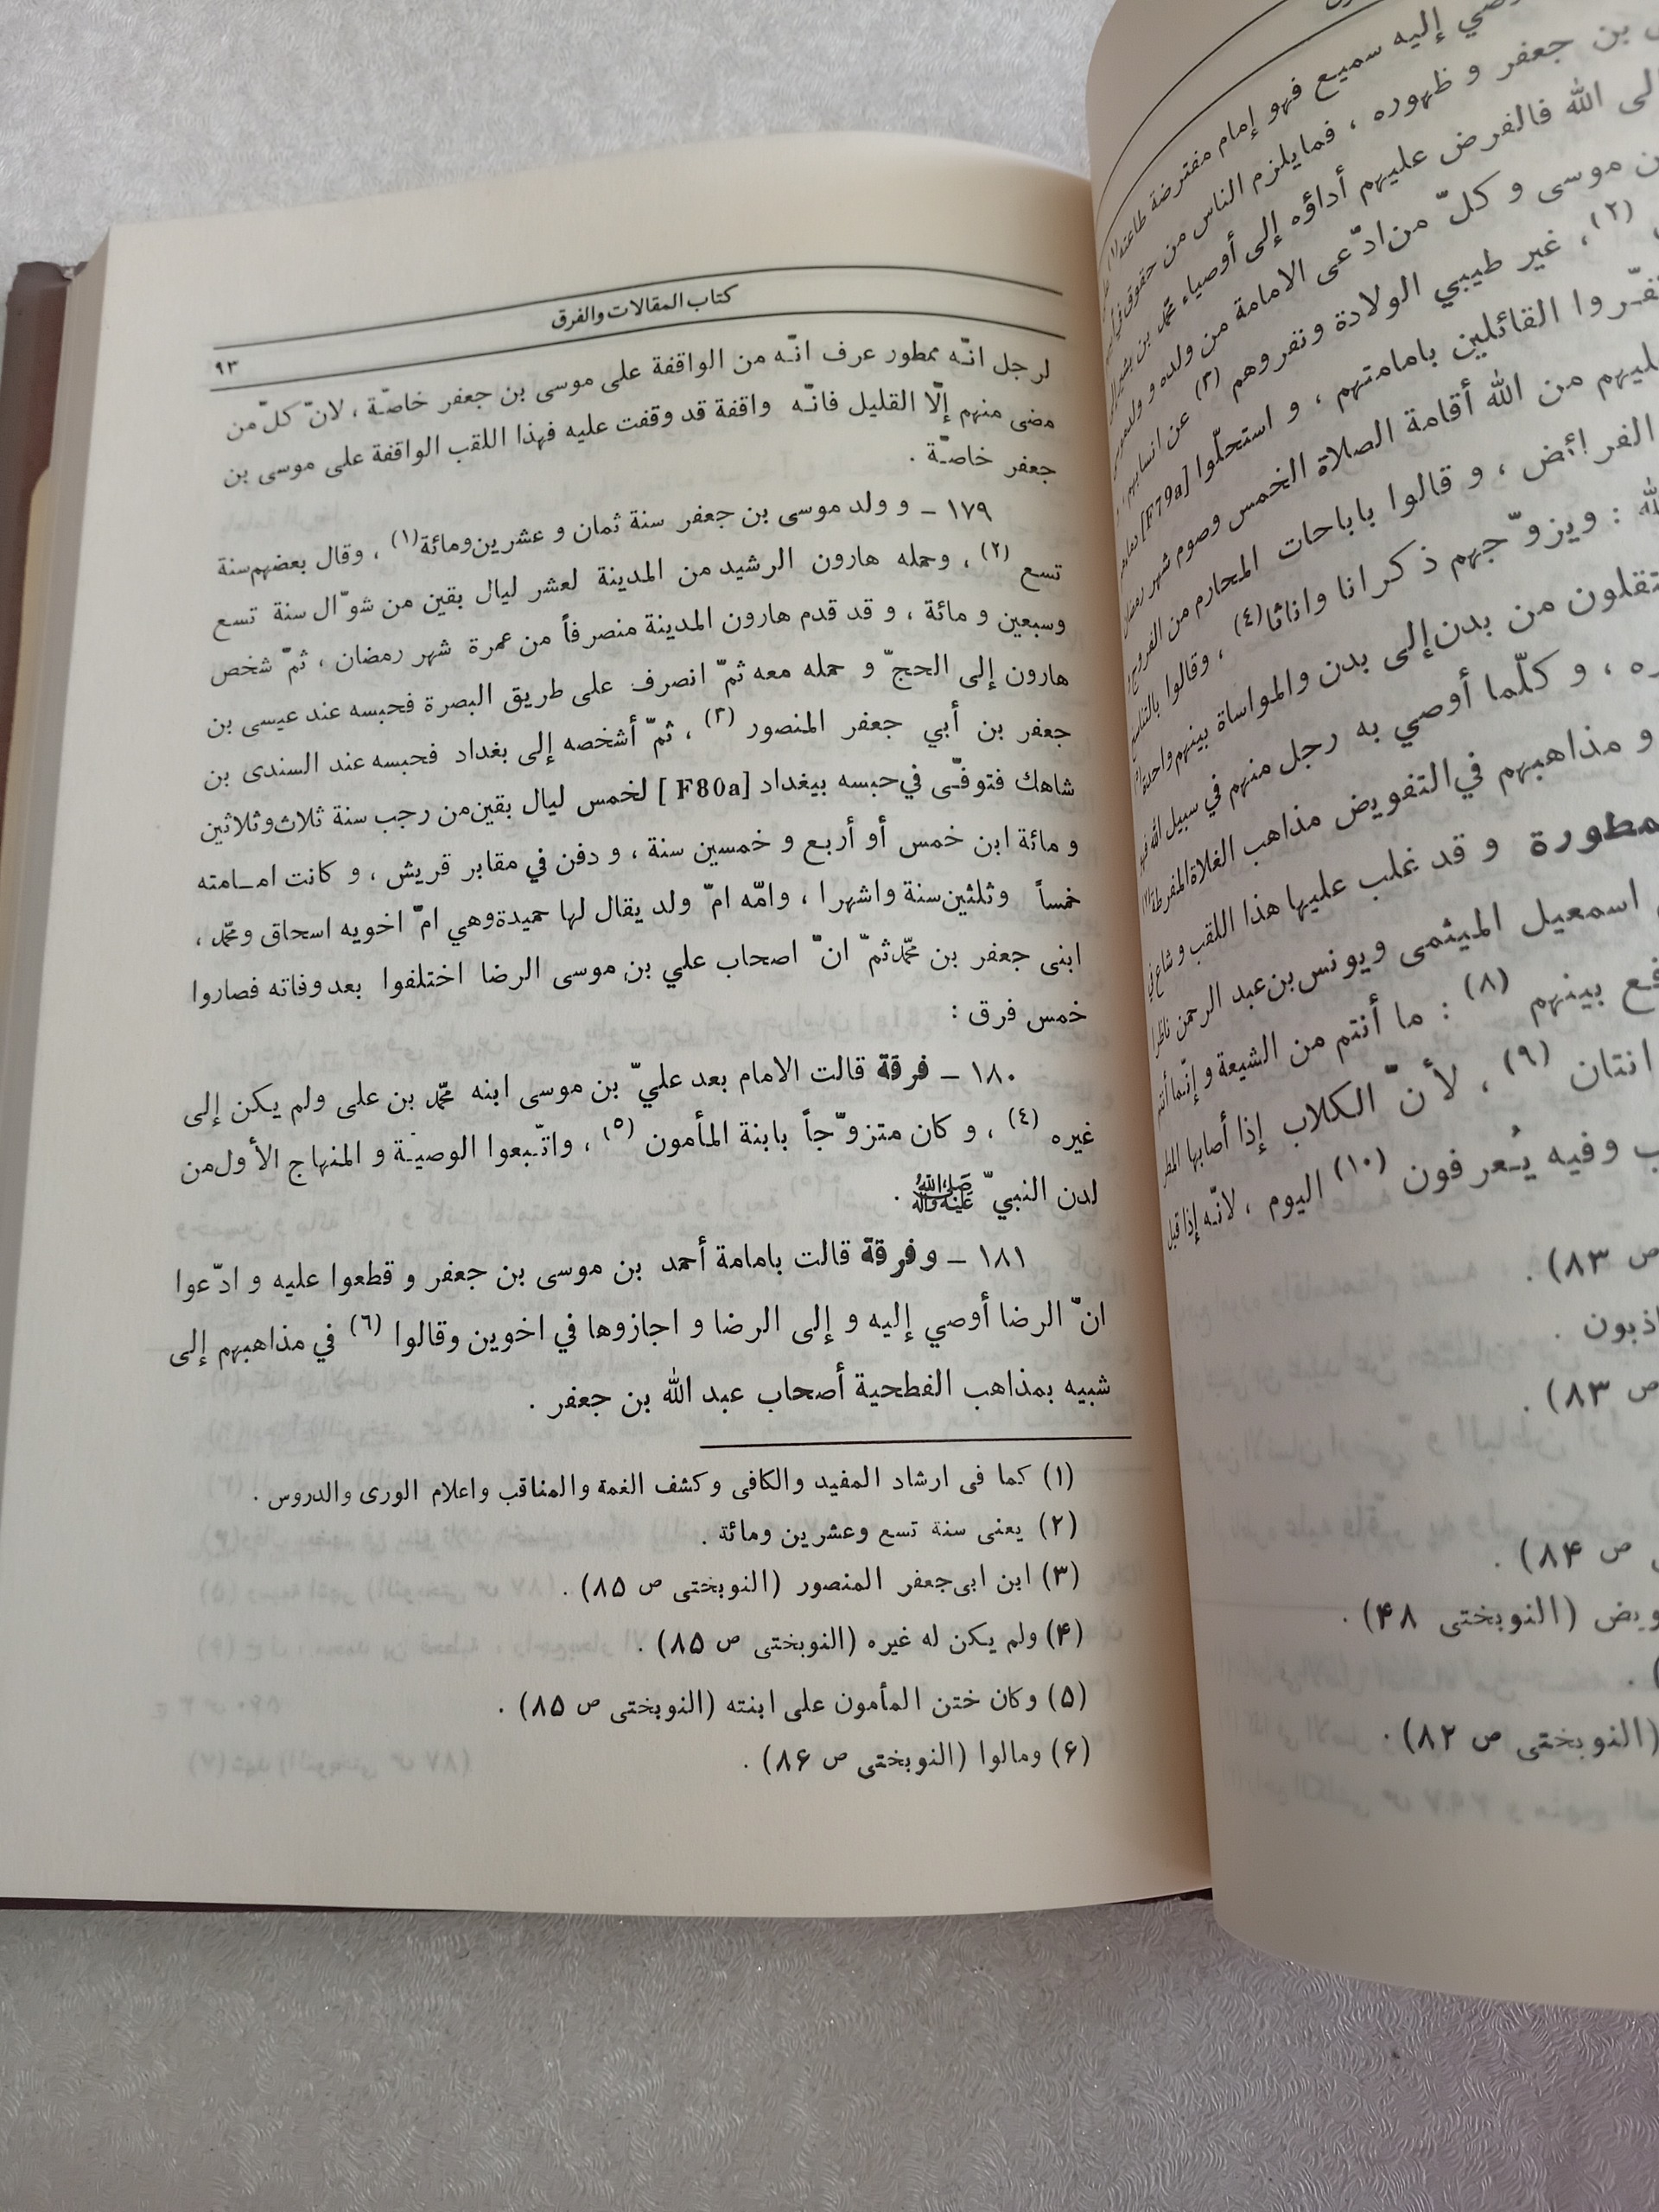 كتاب المقالات والفرق
٩٣
لرجل انّه ممطور عرف انّه من الواقفة على موسى بن جعفر خاصّة ، لانّ كلّ من
مضى منهم إلّا القليل فانّه واقفة قد وقفت عليه فهذا اللقب الواقفة على موسى بن
جعفر خاصّة .
١٧٩ – و ولد موسى بن جعفر سنة ثمان و عشرين ومائة (١) ، وقال بعضهم سنة
تسع (٢) ، وحمله هارون الرشيد من المدينة لعشر ليال بقين من شوّال سنة تسع
وسبعين و مائة ، و قد قدم هارون المدينة منصرفاً من عمرة شهر رمضان ، ثمّ شخص
هارون إلى الحجّ و حمله معه ثمّ انصرف على طريق البصرة فحبسه عند عيسى بن
جعفر بن أبي جعفر المنصور (٣) ، ثمّ أشخصه إلى بغداد فحبسه عند السندى بن
شاهك فتوفّى في حبسه ببغداد [F80a] لخمس ليال بقين من رجب سنة ثلاث وثلاثين
و مائة ابن خمس أو أربع و خمسين سنة ، و دفن في مقابر قريش ، و كانت امامته
خمساً وثلثين سنة واشهرا ، وامّه امّ ولد يقال لها حميدة وهي امّ اخويه اسحاق ومحّمد ،
ابنى جعفر بن محّمد ثمّ انّ اصحاب علي بن موسى الرضا اختلفوا بعد وفاته فصاروا
خمس فرق :
١٨٠ – فرقة قالت الامام بعد عليّ بن موسى ابنه محّمد بن على ولم يكن إلى
غيره (٤) ، و كان متزوّجاً بابنة المأمون (٥) ، واتّبعوا الوصيّة و المنهاج الأول من
لدن النبيّ صلى الله عليه وآله .
١٨١ – وفرقة قالت بامامة أحمد بن موسى بن جعفر و قطعوا عليه و ادّعوا
انّ الرضا أوصي إليه و إلى الرضا و اجازوها في اخوين وقالوا (٦) في مذاهبهم إلى
شبيه بمذاهب الفطحية أصحاب عبد الله بن جعفر .
(١) كما فى ارشاد المفيد والكافى وكشف الغمة والمناقب واعلام الورى والدروس .
(٢) يعنى سنة تسع وعشرين ومائة .
(٣) ابن ابى جعفر المنصور (النوبختى ص ٨٥) .
(۴) ولم يكن له غيره (النوبختى ص ٨٥) .
(۵) وكان ختن المأمون على ابنته (النوبختى ص ٨٥) .
(۶) ومالوا (النوبختى ص ٨۶) .
إليه سميع فهو إمام مفترضة طاعته
بن جعفر و ظهوره ، فما يلزم الناس من حقوق
الله فالفرض عليهم أداؤه إلى أوصياء محّمد بن
موسى و كلّ من ادّعى الامامة من ولده و ولد
(٢) ، غير طيبي الولادة ونفروهم (٣) عن انسابهم
القائلين بامامتهم ، و استحلّوا [F79a]
من الله أقامة الصلاة الخمس وصوم شهر رمضان
الفرائض ، و قالوا باباحات المحارم من الفروج
: ويزوّجهم ذكرانا واناثا (٤) ، وقالوا بالتناسخ
من بدن إلى بدن والمواساة بينهم واجبة
، و كلّما أوصي به رجل منهم في سبيل الله
و مذاهبهم في التفويض مذاهب الغلاة المفرطة
و قد غلب عليها هذا اللقب و شاع
اسمعيل الميثمى ويونس بن عبد الرحمن ناظرا
بينهم (٨) : ما أنتم من الشيعة و إنّما أنتم
انتان (٩) ، لأنّ الكلاب إذا أصابها المطر
وفيه يُعرفون (١٠) اليوم ، لانّه إذا قيل
ص ٨٣) .
ص ٨٣) .
ص ٨۴) .
(النوبختى ۴٨) .
(النوبختى ص ٨٢) .